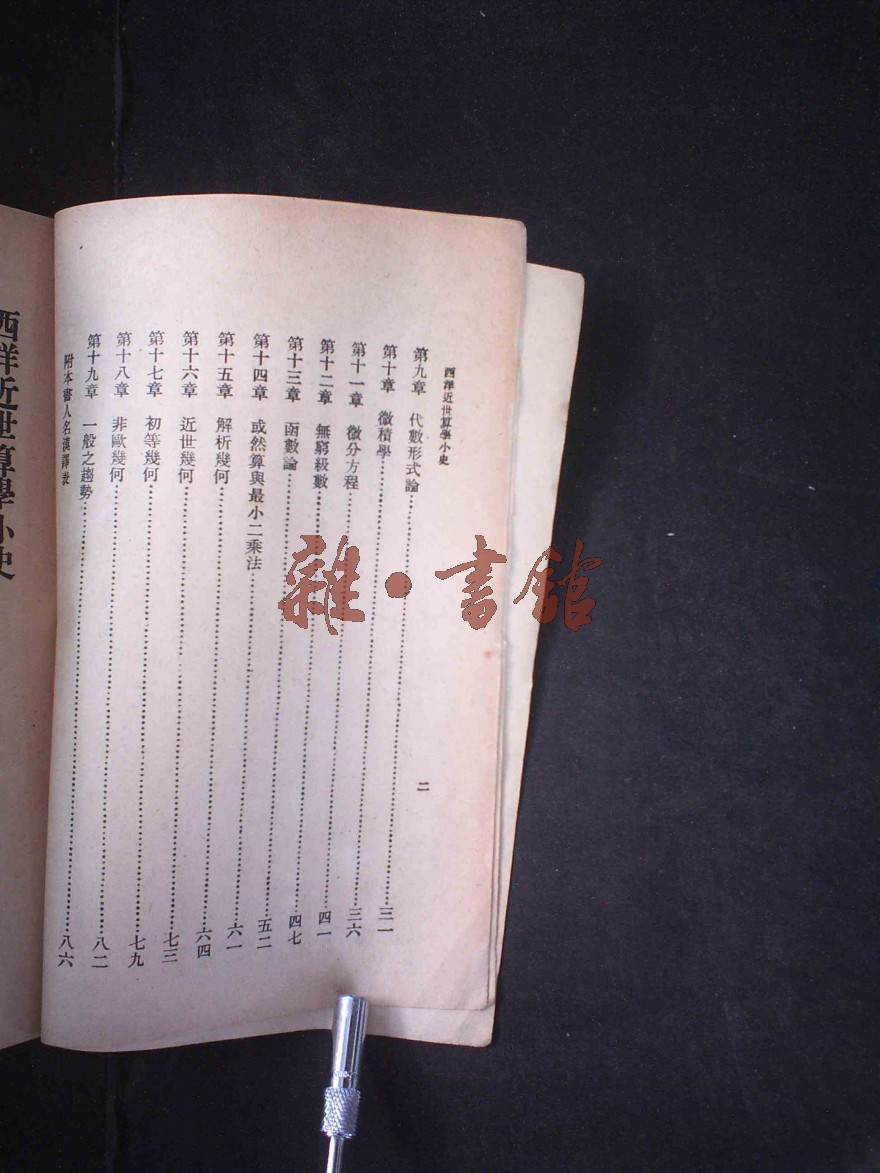 西洋近世算學小史
二
第九章 代數形式論……三一
第十章 微積學……三六
第十一章 微分方程……四一
第十二章 無窮級數……四七
第十三章 函數論……五二
第十四章 或然算與最小二乘法……六一
第十五章 解析幾何……六四
第十六章 近世幾何……七三
第十七章 初等幾何……七九
第十八章 非歐幾何……八二
第十九章 一般之趨勢……八六
附本書人名漢譯表
西洋近世算學小史
雜·書館